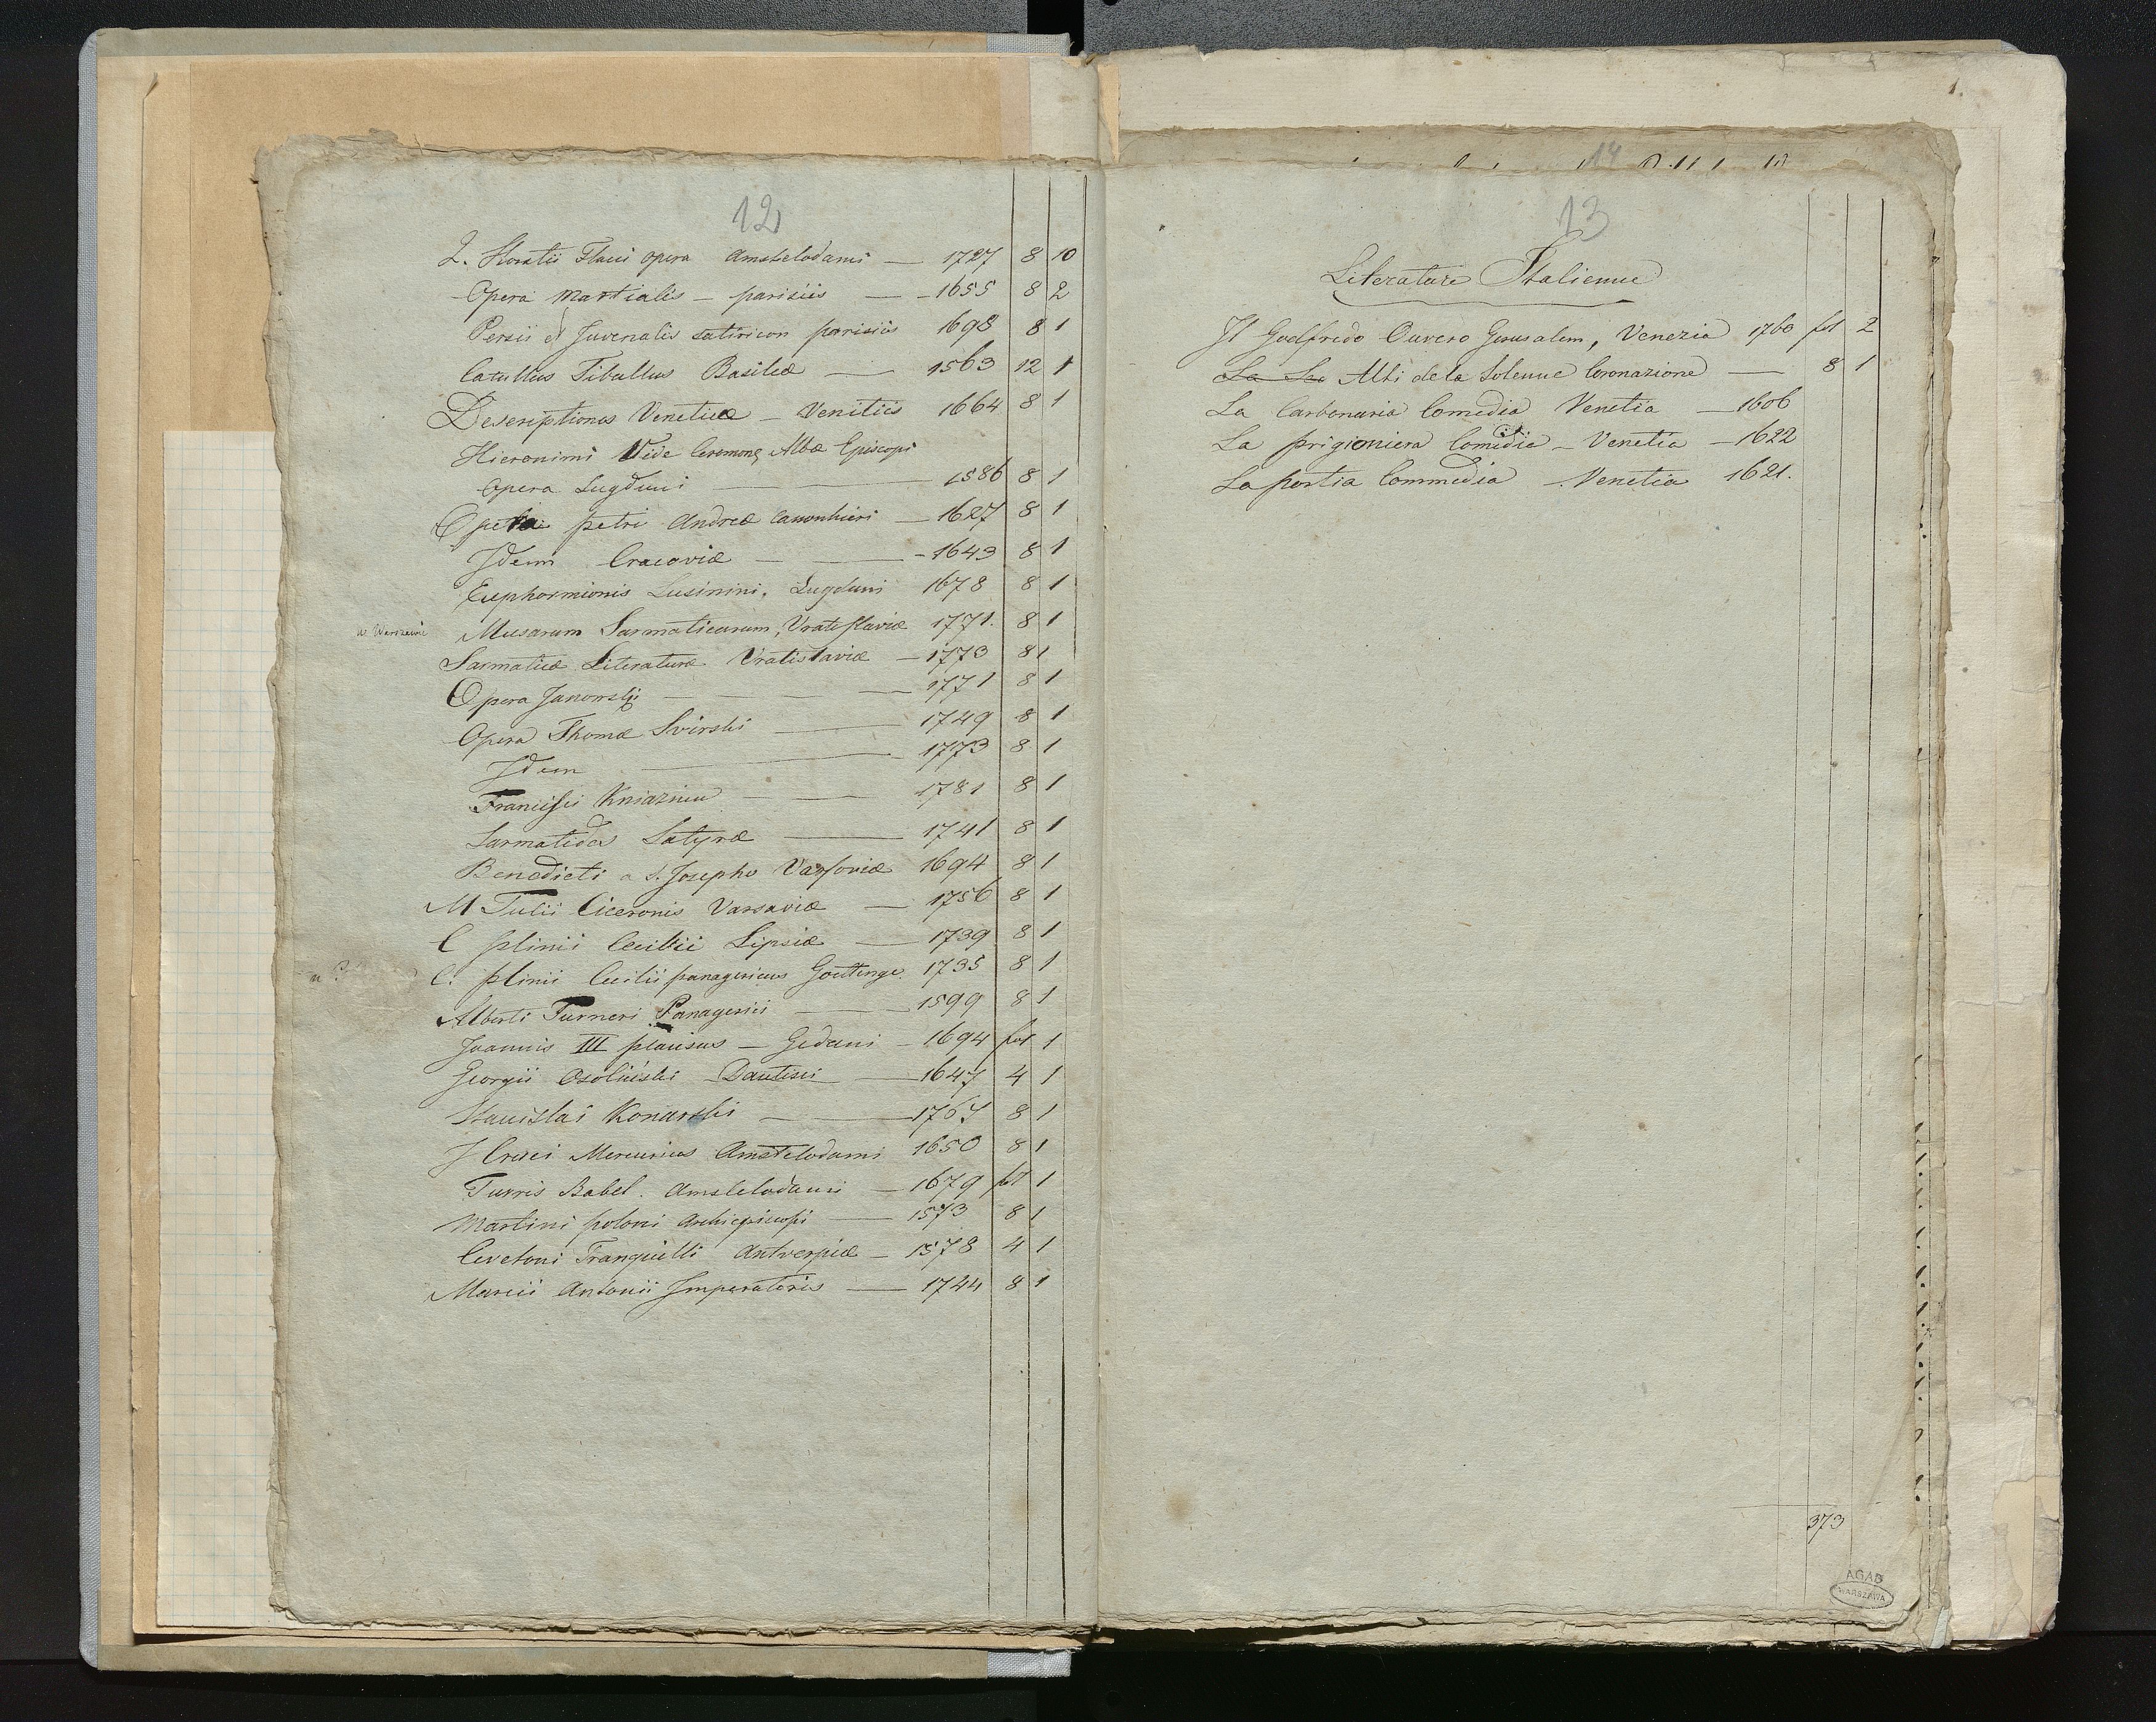 12
Q. Horatii Flaui opera Amstelodami — 1727 8 10
Opera Martialis — parisiis — 1655 8 2
Persii et Juvenalis satiricon parisiis 1698 8 1
Catullus Tibullus Basileæ — 1563 12 1
Descriptiones Venetiæ — Venitiis 1664 8 1
Hieronimi Vide Cremone Albæ Episcopi
Opera Lugduni — 1586 8 1
Opera petri Andreæ Canonhieri — 1627 8 1
Idem Cracoviæ — 1643 8 1
Euphormionis Lusinini, Lugduni 1678 8 1
w Warszawie Musarum Sarmaticarum, Vratislaviæ 1771. 8 1
Sarmaticæ Literaturæ Vratislaviæ — 1773 8 1
Opera Janowski — 1771 8 1
Opera Thomæ Svirski — 1749 8 1
Idem — 1773 8 1
Francisci Kniaznin — 1781 8 1
Sarmatides Satyræ — 1741 8 1
Benedicti a S. Josepho Varsoviæ 1694 8 1
M Tulii Ciceronis Varsaviæ — 1756 8 1
C plinii Cecilii Lipsiæ — 1739 8 1
C. plinii Cecilii panagericus Goettinge. 1735 8 1
Alberti Turneri Panagerici — 1599 8 1
Joannis III plausus — Gedani — 1694 fol 1
Georgii Osoliński Dantisci — 1647 4 1
Stanislai Konarski — 1767 8 1
J Crucei Mercurius Amstelodami 1650 8 1
Turris Babel. Amstelodami — 1679 fol 1
Martini poloni Archiepiscopi — 1573 8 1
Cevetoni Tranquilli Antverpiæ — 1578 4 1
Marcii Antonii Imperatoris — 1744 8 1
1.
14
13
Literature Italienne
Il Godfredo Ouvero Gerusalem, Venezia 1760 fol 2
Alti de la Solenne Coronazione — 8 1
La Carbonaria Comedia Venetia — 1606
La prigioniera Comedie — Venetia — 1622
La portia Commedia — Venetia 1621.
373
AGAD
WARSZAWA